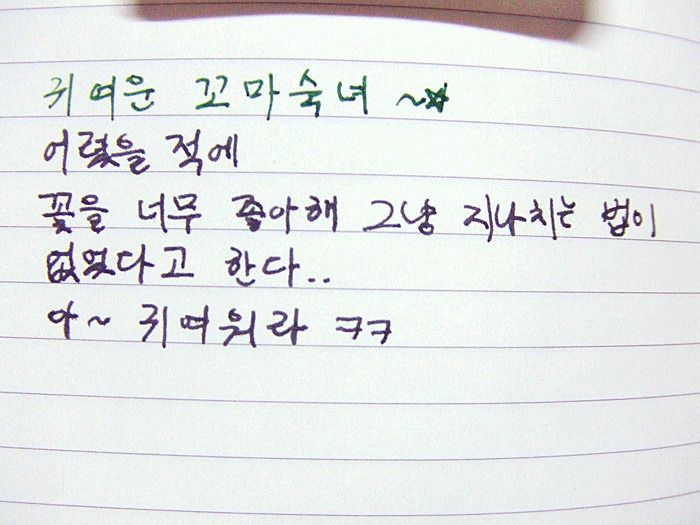 귀여운 꼬마숙녀 ~☆
어렸을 적에
꽃을 너무 좋아해 그냥 지나치는 법이
없었다고 한다..
아~ 귀여워라 ㅋㅋ